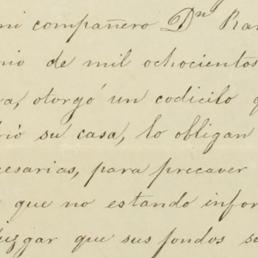 mi compañero Dn Ra
nio de mil ochocientos
va, otorgó un codicilo q
rió su casa, lo obligan
cesarias, para precaver
que no estando infor
uzgar que sus fondos s